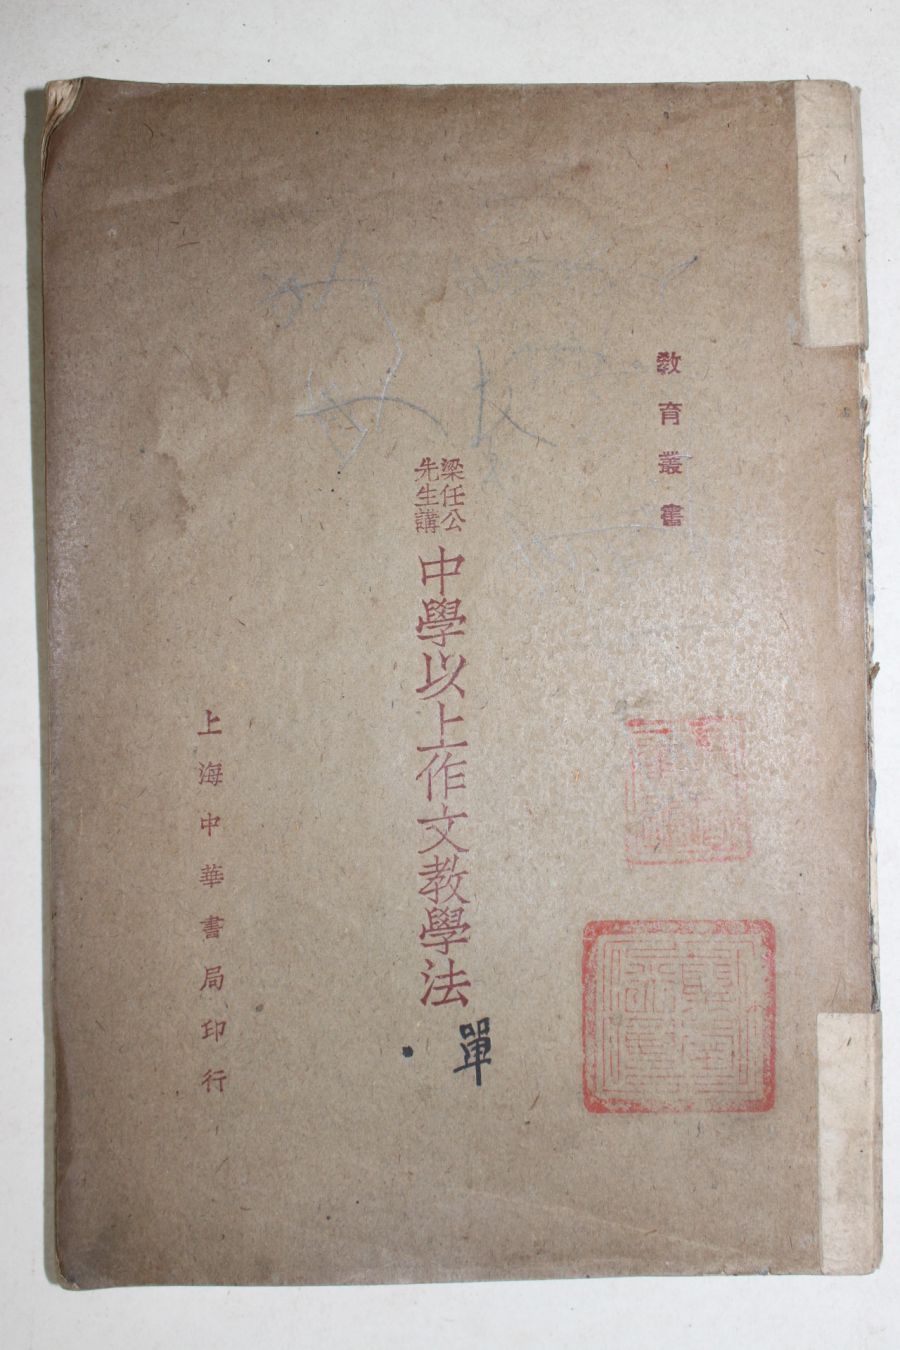 教育叢書
梁任公
先生講
中學以上作文教學法
單
上海中華書局印行